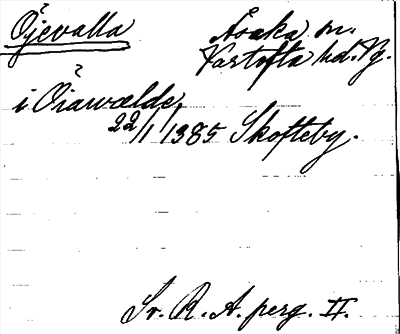 Öjevalla
Åsaka sn.
Vartofta hd. Vg.
i Öiawælde
22/1 1385 Skofteby.
Sv. R. A. perg. II.